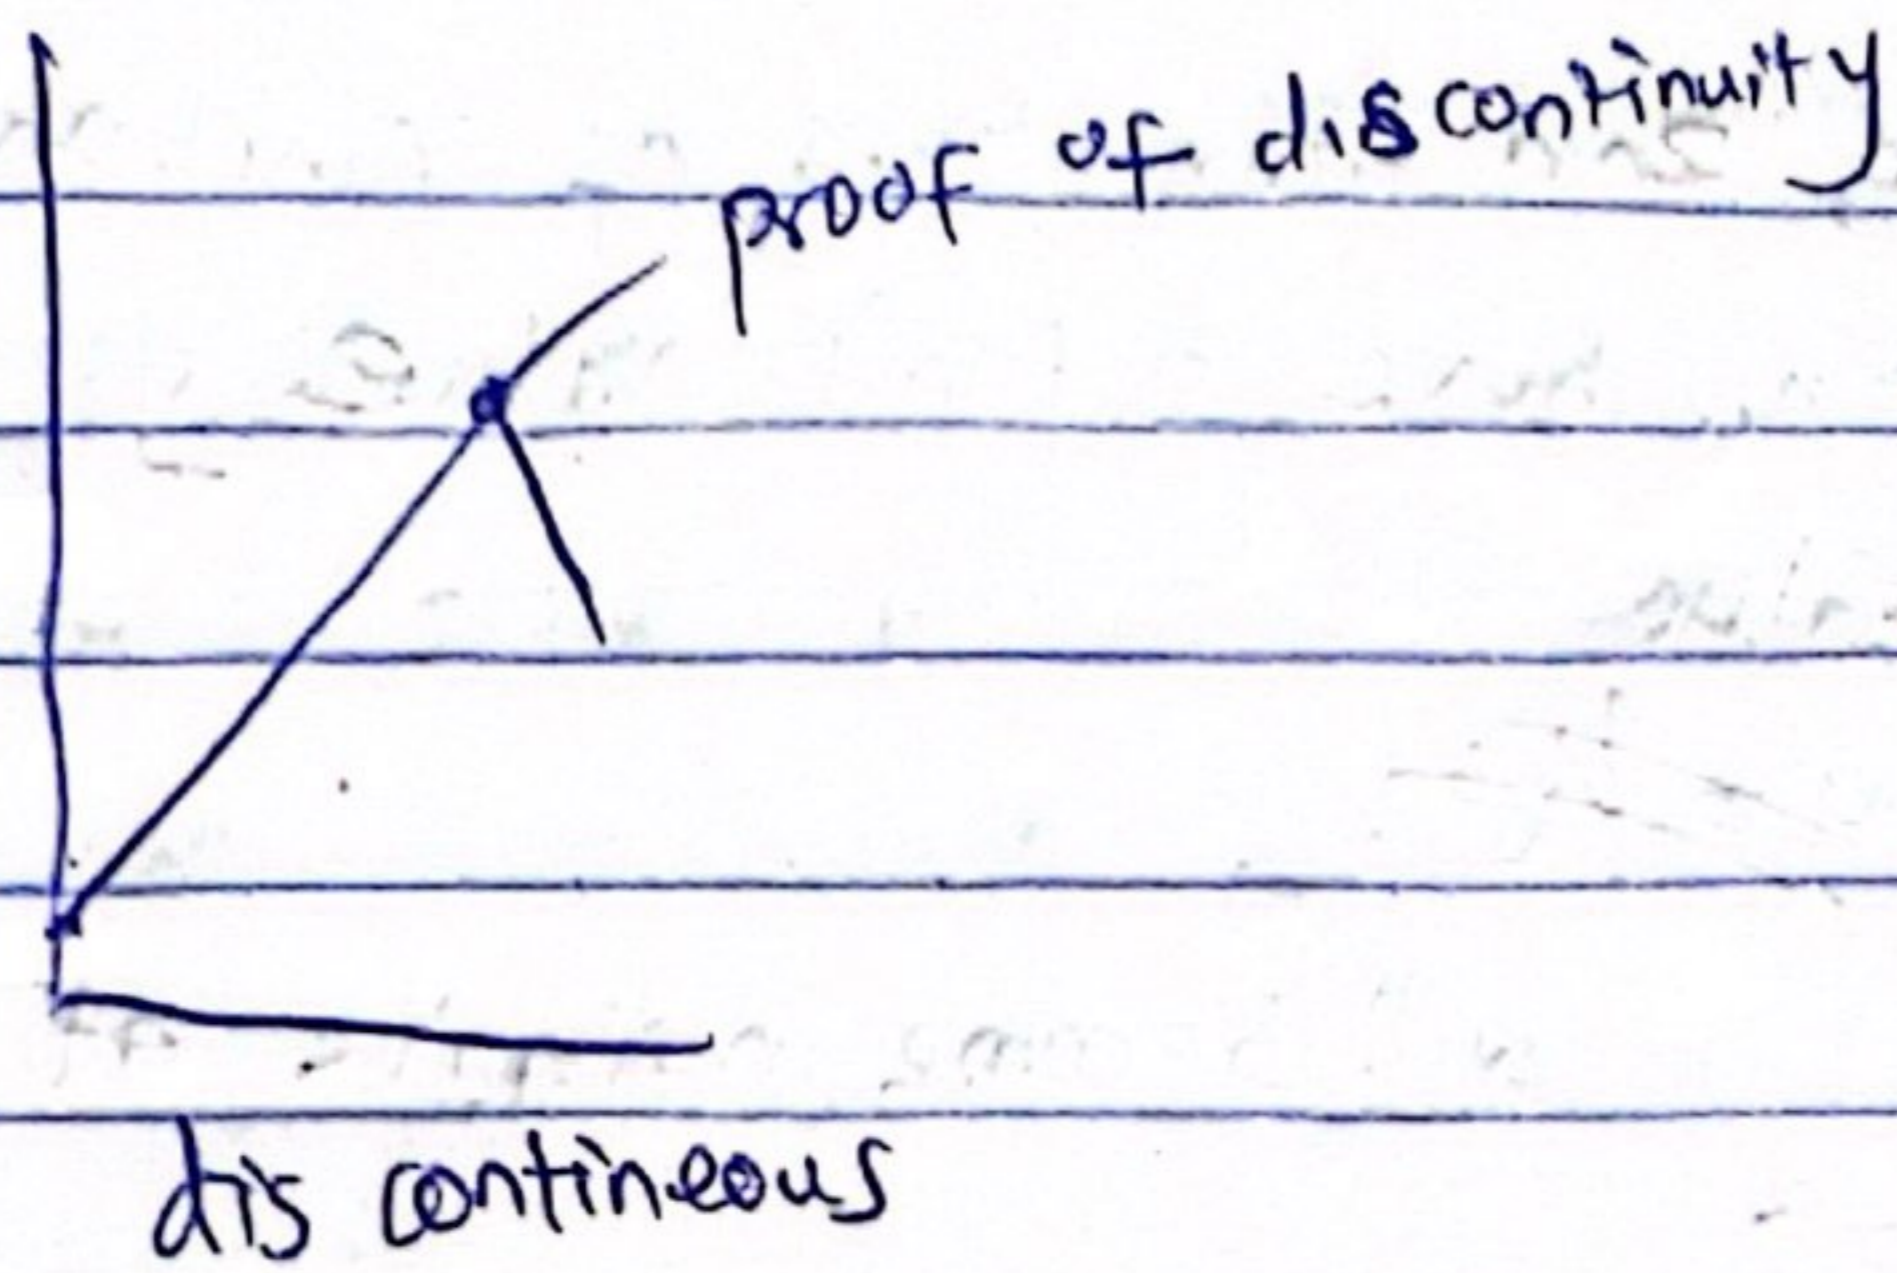 proof of discontinuity
dis contineous